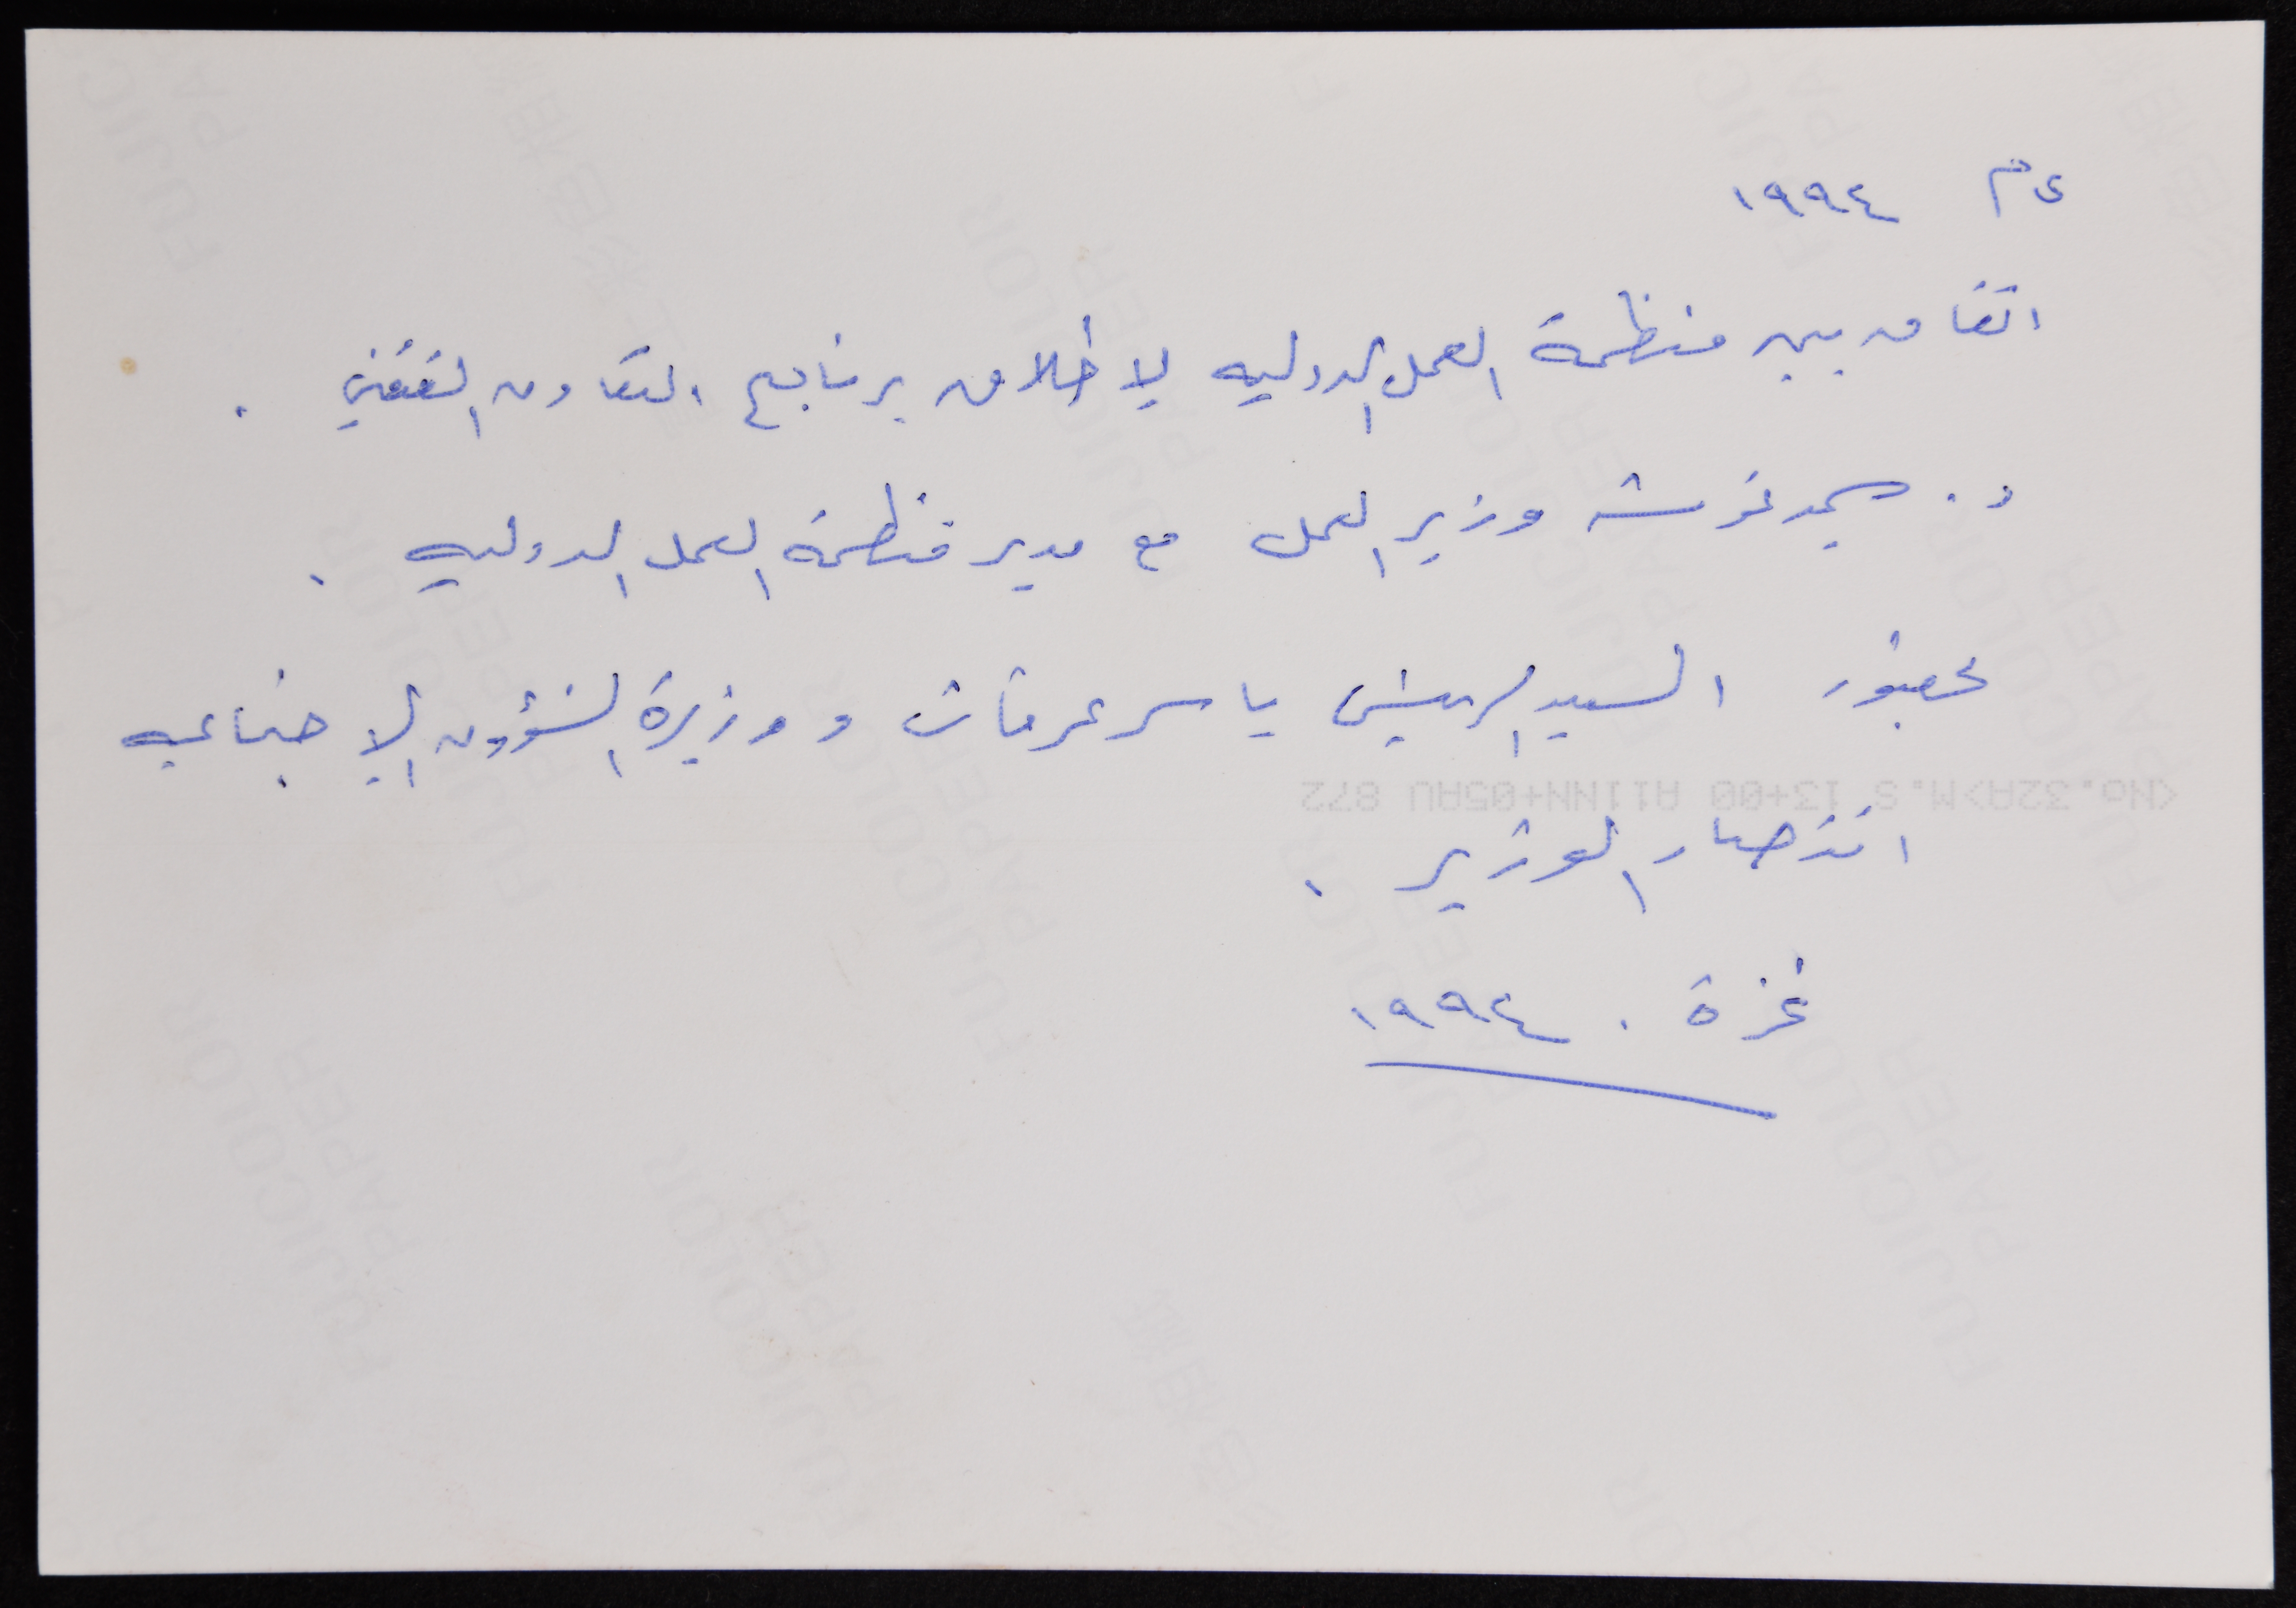 عام ١٩٩٤
اتفاق بين منظمة العمل الدوليه لإطلاق برنامج التعاون التقني .
د. سمير غوشه وزير العمل مع مدير منظمة العمل الدوليه .
بحضور السيد الرئيس ياسر عرفات و وزيرة الشؤون الإجتماعيه
انتصار الوزير .
غزة . ١٩٩٤
<No.32A>M.S 13+00 A11NN+05AU 872
FUJICOLOR PAPER